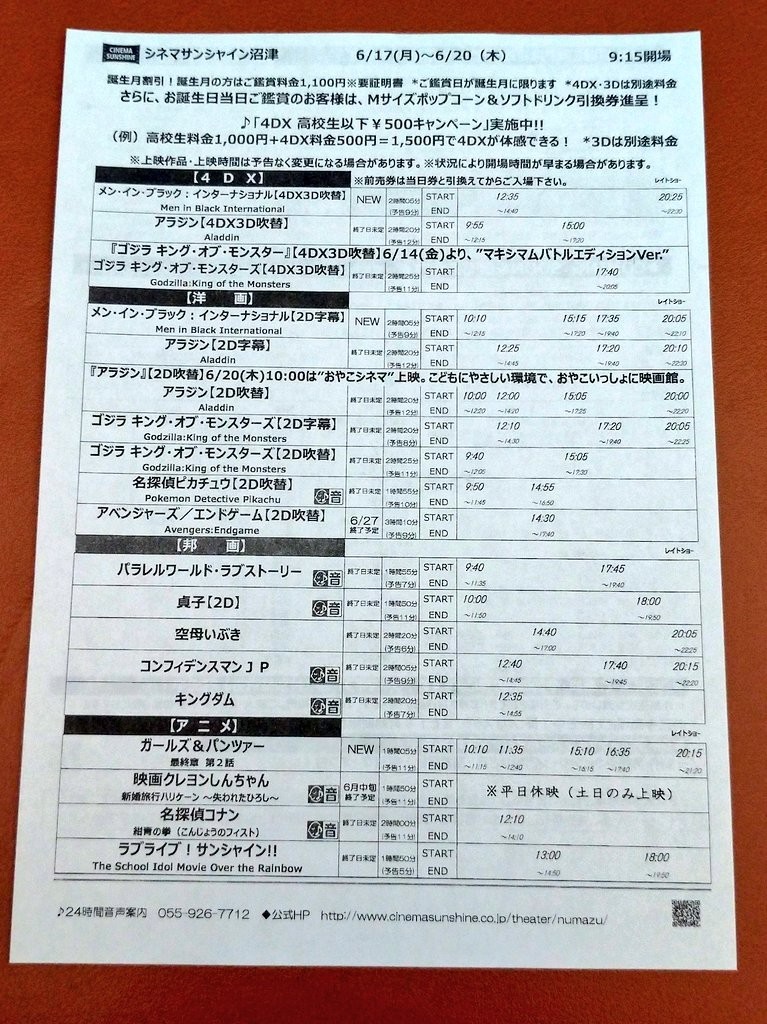 CINEMA SUNSHINE シネマサンシャイン沼津 6/17(月)～6/20（木） 9:15開場
誕生月割引！誕生月の方はご鑑賞料金1,100円※要証明書 *ご鑑賞日が誕生月に限ります *4DX・3Dは別途料金
さらに、お誕生日当日ご鑑賞のお客様は、Mサイズポップコーン＆ソフトドリンク引換券進呈！
♪「4DX 高校生以下￥500キャンペーン」実施中!!
（例）高校生料金1,000円＋4DX料金500円＝1,500円で4DXが体感できる！ *3Dは別途料金
※上映作品・上映時間は予告なく変更になる場合があります。※状況により開場時間が早まる場合があります。
【4DX】 ※前売券は当日券と引換えてからご入場下さい。 レイトショー
メン・イン・ブラック：インターナショナル【4DX3D吹替】 NEW 2時間05分 START 12:35 20:25
Men in Black International (予告9分) END ～14:40 ～22:30
アラジン【4DX3D吹替】 終了日未定 2時間20分 START 9:55 15:00
Aladdin (予告12分) END ～12:15 ～17:20
『ゴジラ キング・オブ・モンスター』【4DX3D吹替】6/14(金)より、"マキシマムバトルエディションVer."
ゴジラ キング・オブ・モンスターズ【4DX3D吹替】 終了日未定 2時間25分 START 17:40
Godzilla:King of the Monsters (予告11分) END ～20:05
【洋 画】 レイトショー
メン・イン・ブラック：インターナショナル【2D字幕】 NEW 2時間05分 START 10:10 15:15 17:35 20:05
Men in Black International (予告9分) END ～12:15 ～17:20 ～19:40 ～22:10
アラジン【2D字幕】 終了日未定 2時間20分 START 12:25 17:20 20:10
Aladdin (予告12分) END ～14:45 ～19:40 ～22:30
『アラジン』【2D吹替】6/20(木)10:00は"おやこシネマ"上映。こどもにやさしい環境で、おやこいっしょに映画館。
アラジン【2D吹替】 終了日未定 2時間20分 START 10:00 12:00 15:05 20:00
Aladdin (予告12分) END ～12:20 ～14:20 ～17:25 ～22:20
ゴジラ キング・オブ・モンスターズ【2D字幕】 終了日未定 2時間20分 START 12:10 17:20 20:05
Godzilla:King of the Monsters (予告8分) END ～14:30 ～19:40 ～22:25
ゴジラ キング・オブ・モンスターズ【2D吹替】 終了日未定 2時間25分 START 9:40 15:05
Godzilla:King of the Monsters (予告11分) END ～12:05 ～17:30
名探偵ピカチュウ【2D吹替】 終了日未定 1時間55分 START 9:50 14:55
Pokemon Detective Pikachu 音 (予告10分) END ～11:45 ～16:50
アベンジャーズ／エンドゲーム【2D吹替】 6/27 3時間10分 START 14:30
Avengers:Endgame 終了予定 (予告9分) END ～17:40
【邦 画】 レイトショー
パラレルワールド・ラブストーリー 音 終了日未定 1時間55分 START 9:40 17:45
(予告7分) END ～11:35 ～19:40
貞子【2D】 音 終了日未定 1時間50分 START 10:00 18:00
(予告11分) END ～11:50 ～19:50
空母いぶき 終了日未定 2時間20分 START 14:40 20:05
(予告6分) END ～17:00 ～22:25
コンフィデンスマンＪＰ 音 終了日未定 2時間05分 START 12:40 17:40 20:15
(予告9分) END ～14:45 ～19:45 ～22:20
キングダム 音 終了日未定 2時間20分 START 12:35
(予告7分) END ～14:55
【アニメ】 レイトショー
ガールズ＆パンツァー NEW 1時間05分 START 10:10 11:35 15:10 16:35 20:15
最終章 第2話 (予告11分) END ～11:15 ～12:40 ～16:15 ～17:40 ～21:20
映画クレヨンしんちゃん 6月中旬 1時間50分 START ※平日休映（土日のみ上映）
新婚旅行ハリケーン ～失われたひろし～ 音 終了予定 (予告11分) END
名探偵コナン 終了日未定 2時間00分 START 12:10
紺青の拳（こんじょうのフィスト） 音 (予告11分) END ～14:10
ラブライブ！サンシャイン!! 終了日未定 1時間50分 START 13:00 18:00
The School Idol Movie Over the Rainbow (予告5分) END ～14:50 ～19:50
♪24時間音声案内 055-926-7712 ◆公式HP http://www.cinemasunshine.co.jp/theater/numazu/